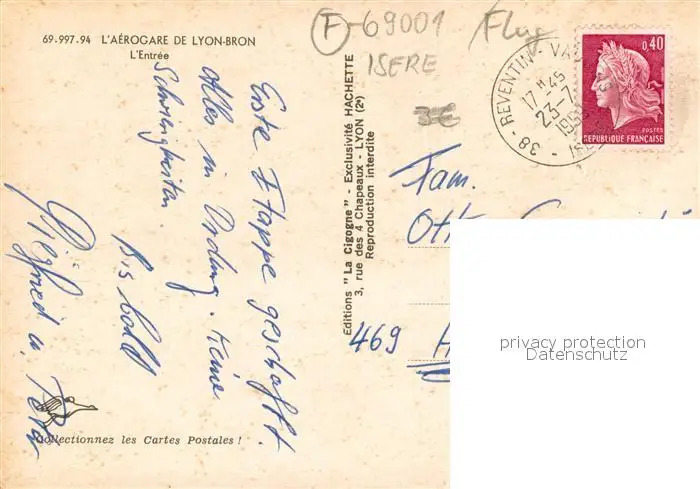 69-997-94 L'AÉROGARE DE LYON-BRON
L'Entrée
F-69001
ISERE
Flug
3€
0,40
POSTES
REPUBLIQUE FRANÇAISE
38 - REVENTIN - VA
17 H 45
23-7
ISERE
Erste Etappe geschafft.
Alles in Ordnung. Keine
Schwierigkeiten
Bis bald
Siegfried u. Petra
Editions "La Cigogne" - Exclusivité HACHETTE
3, rue des 4 Chapeaux - LYON (2e)
Reproduction interdite
Fam.
Otto
469 H
privacy protection
Datenschutz
Collectionnez les Cartes Postales !